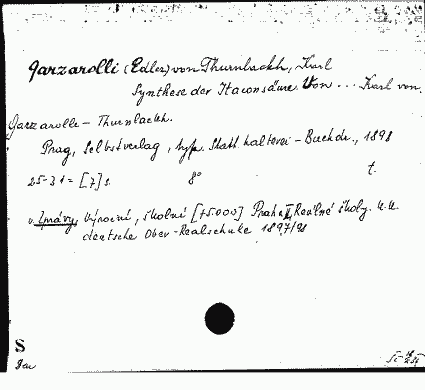 Garzarolli (Edler) von Thurnlackh, Karl
Synthese der Itaconsäure. Von ... Karl von
Garzarolli - Thurnlackh.
Prag, Selbstverlag, typ. Statthalterei - Buchdr., 1898
25-31 = [7] s. 8° t.
v. Zprávy, výroční, školní [75.000] Praha II, Reálné školy. K.K.
deutsche Ober-Realschule 1897/98
S
Gar